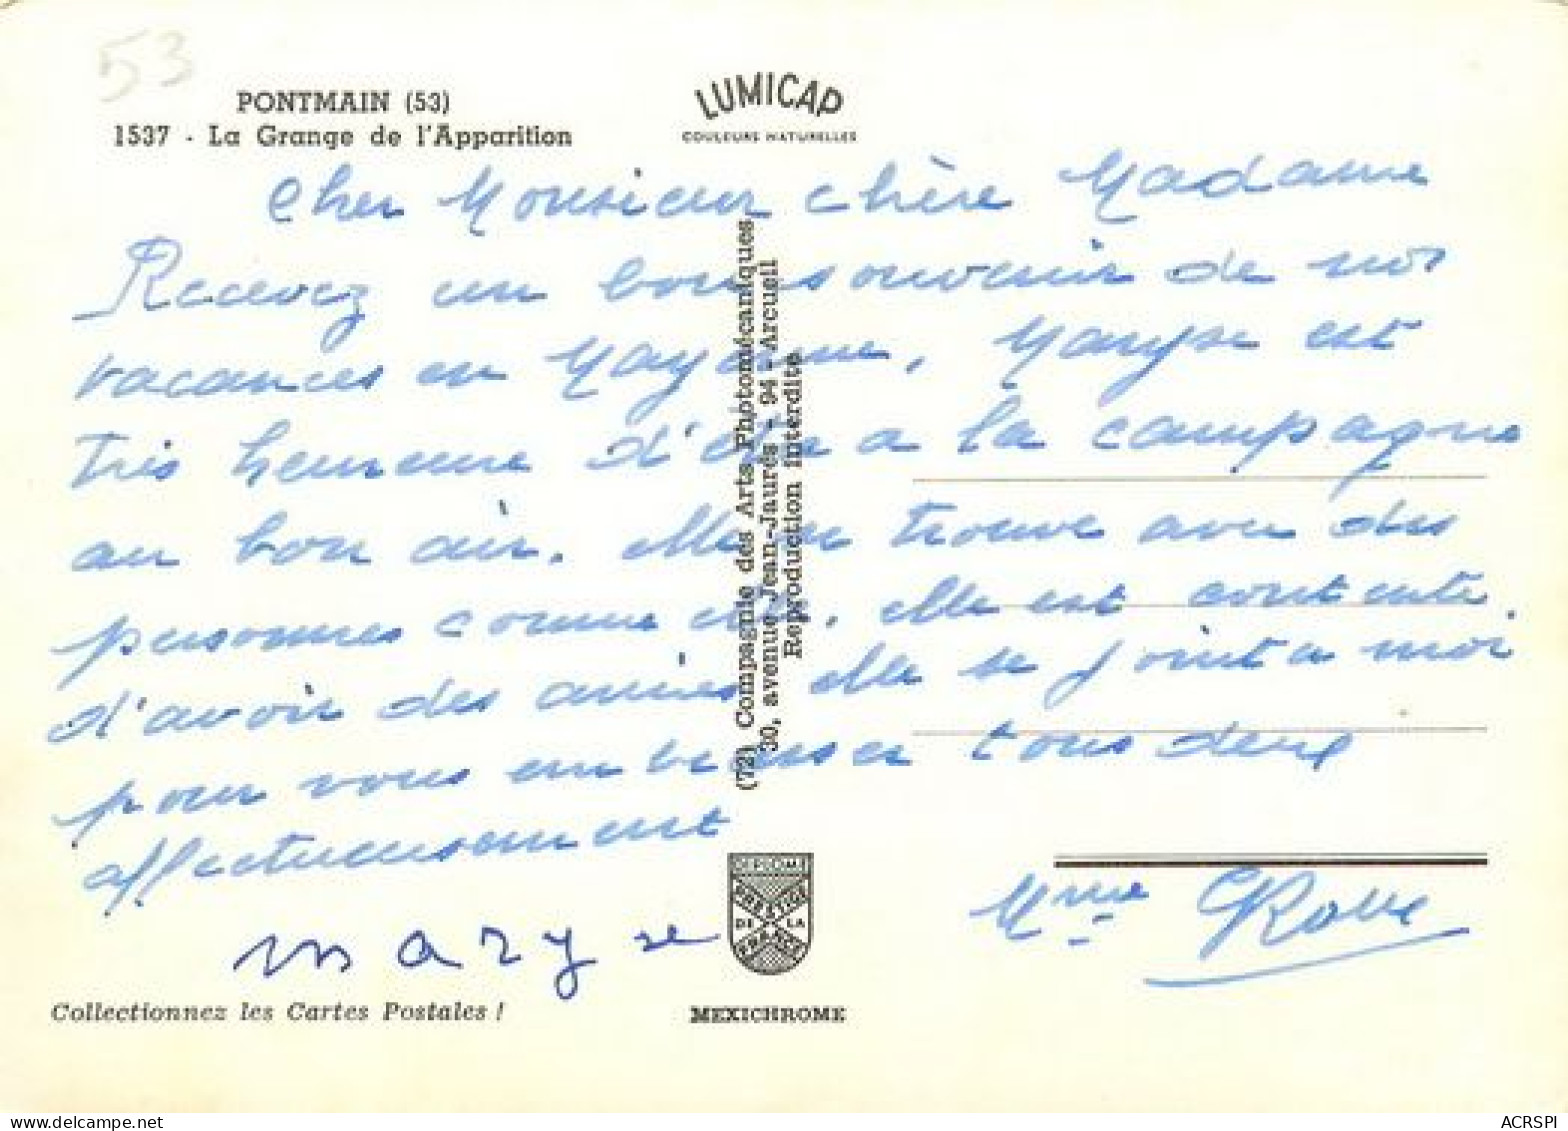 53
PONTMAIN (53)
1537 - La Grange de l'Apparition
LUMICAP
COULEURS NATURELLES
Cher Monsieur chère Madame
Recevez un bon souvenir de nos
vacances en Mayenne, Maryse est
très heureuse d'être a la campagne
au bon air. elle se trouve avec des
personnes comme elle. elle est contente
d'avoir des amies elle se joint a moi
pour vous embrasser tous deux
affectueusement
Mme
maryse
(72) Compagnie des Arts Photomécaniques
30, avenue Jean-Jaurès - 94 - Arcueil
Reproduction interdite
DIPLOME
PRESTIGE
DE LA
FRANCE
Collectionnez les Cartes Postales !
MEXICHROME
www.delcampe.net
ACRSPI